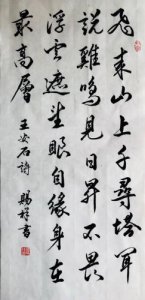 飛來山上千尋塔聞
說雞鳴見日昇不畏
浮雲遮望眼自緣身在
最高層 王安石詩 賜祥書